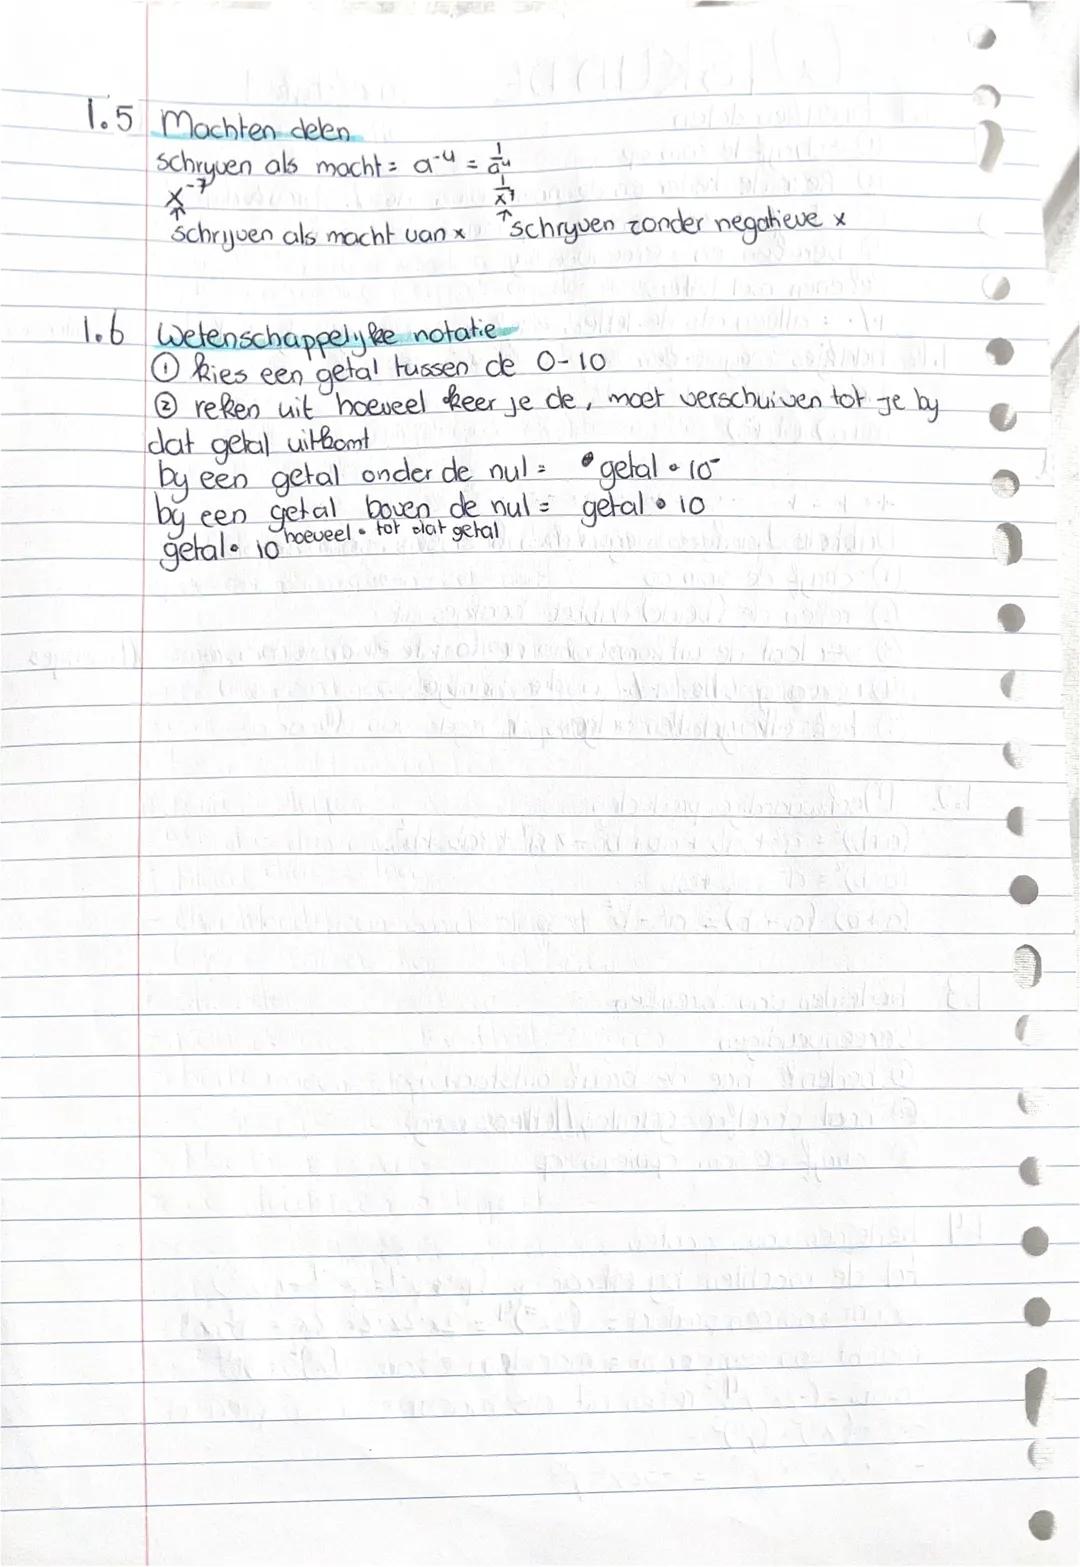 1.5 Machten delen
schryven als macht = a⁻⁴ = 1/a⁴
x⁻⁷ 1/x⁷
↑ schrijven als macht van x ↑ schryven zonder negatieve x
1.6 Wetenschappelyke notatie
① kies een getal tussen de 0-10
② reken uit hoeveel keer je de , moet verschuiven tot je by
dat getal uitkomt
by een getal onder de nul = getal • 10⁻
by een getal boven de nul = getal • 10
getal • 10 hoeveel • tot dat getal